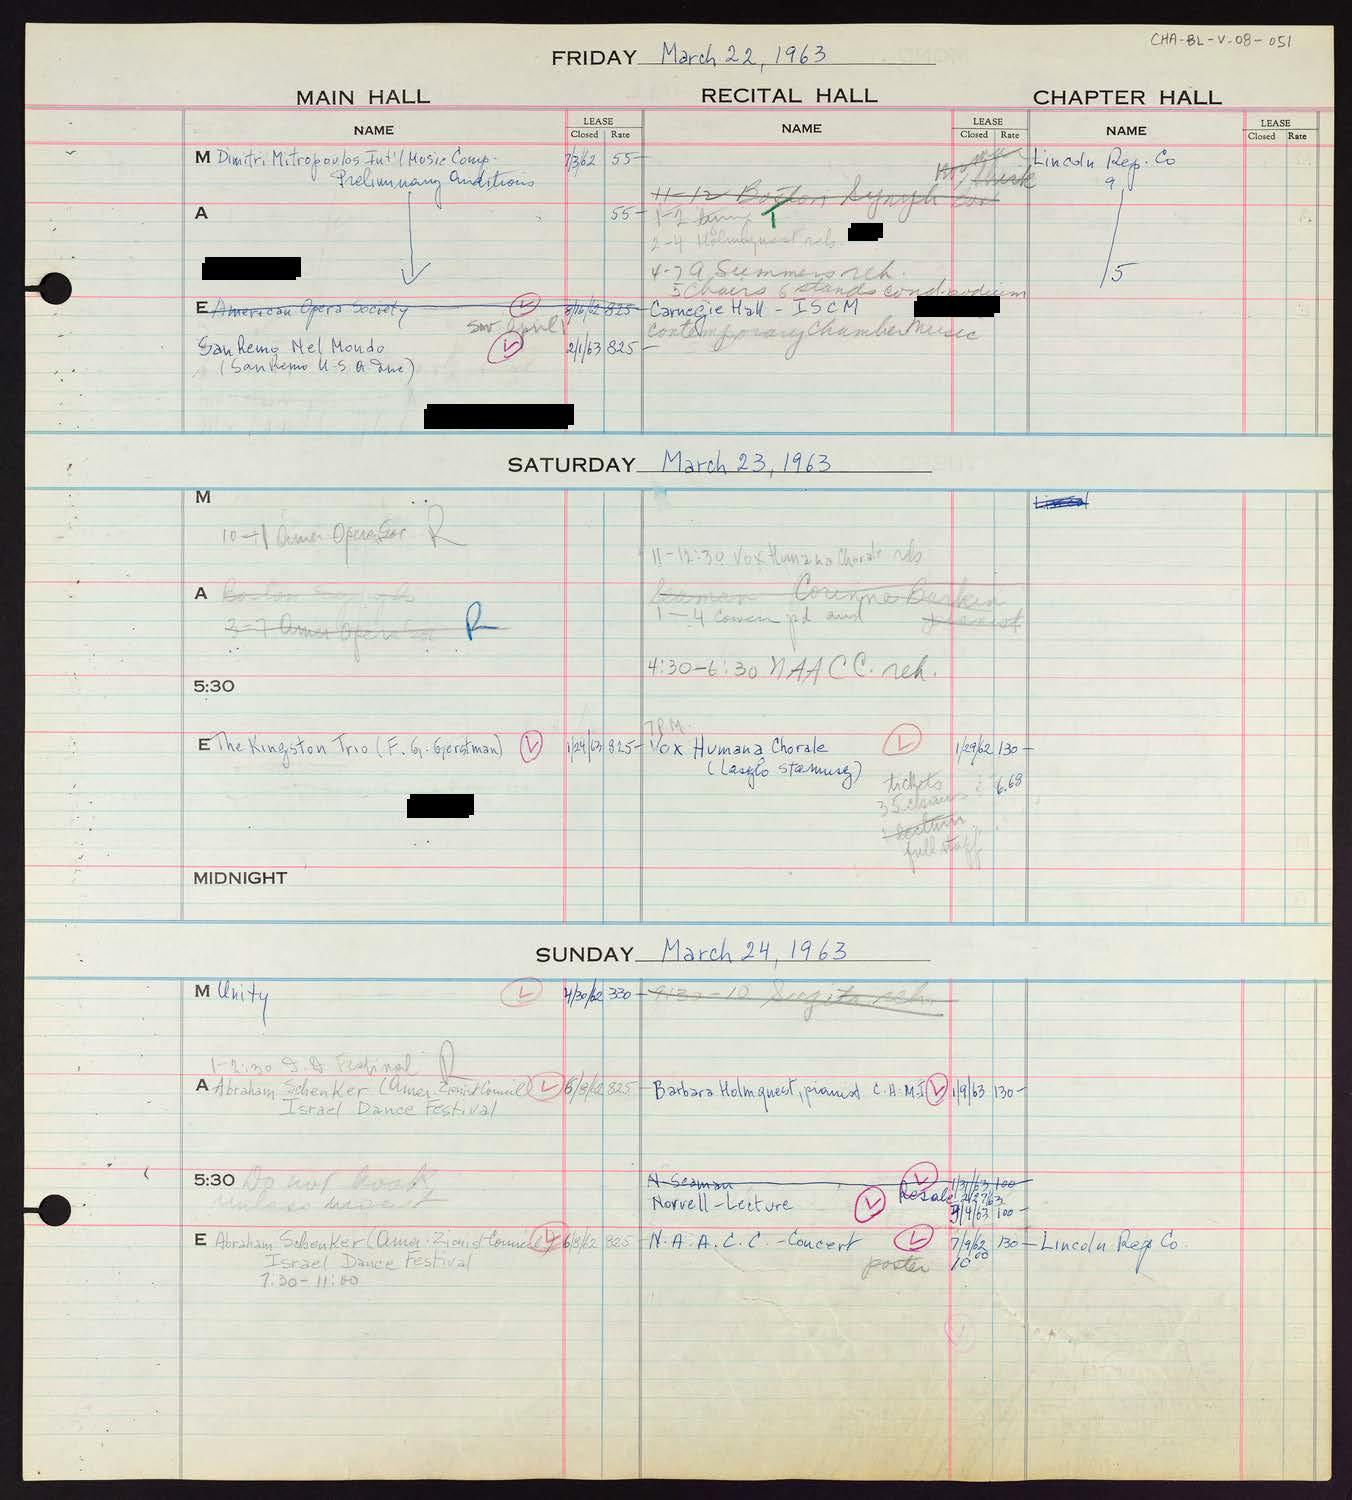 CHA-BL-V-08-051
FRIDAY March 22, 1963
MAIN HALL RECITAL HALL CHAPTER HALL
NAME LEASE Closed Rate NAME LEASE Closed Rate NAME LEASE Closed Rate
M Dimitri Mitropoulos Int'l Music Comp. 7/3/62 55-
Preliminary Auditions
Lincoln Rep. Co
9
5
11-12 Boston Symph
A 55-
1-2
2-4 Holmquest reh.
4-7 A Summers reh.
5 chairs 6 stands cond. podium
E American Opera Society 825-
Carnegie Hall - ISCM
contemporary Chamber Music
San Remo Nel Mondo 2/1/63 825-
(San Remo U.S.A. Inc)
SATURDAY March 23, 1963
M
10-1 Amer Opera Soc R
11-12:30 Vox Humana Chorale reh
A Boston Symph
Seaman Corinna
2-7 Amer Opera Soc R
1-4 Cowen pd and
4:30-6:30 NAACC. reh.
5:30
7 PM.
E The Kingston Trio (F. G. Gerstman) 1/24/63 825-
Vox Humana Chorale 1/29/62 130-
(Laszlo
tickets
6.68
35 chairs
full staff
MIDNIGHT
SUNDAY March 24, 1963
M Unity 4/30/62 330-
9:30-10 Sugita reh.
1-2:30 I.D Festival R
A Abraham Schenker (Amer. Zionist Council) 6/8/62 825-
Israel Dance Festival
Barbara Holmquest, pianist C.H.M-I 1/9/63 130-
5:30 Do not book
unless
N Seaman 1/31/63 100-
Norvell-Lecture Resale 2/27/63
3/4/63 100-
E Abraham Schenker (Amer. Zionist Council) 6/8/62 825-
Israel Dance Festival
7:30-11:00
N.A.A.C.C.-Concert 7/9/62 130-
poster 10.00
Lincoln Rep Co.